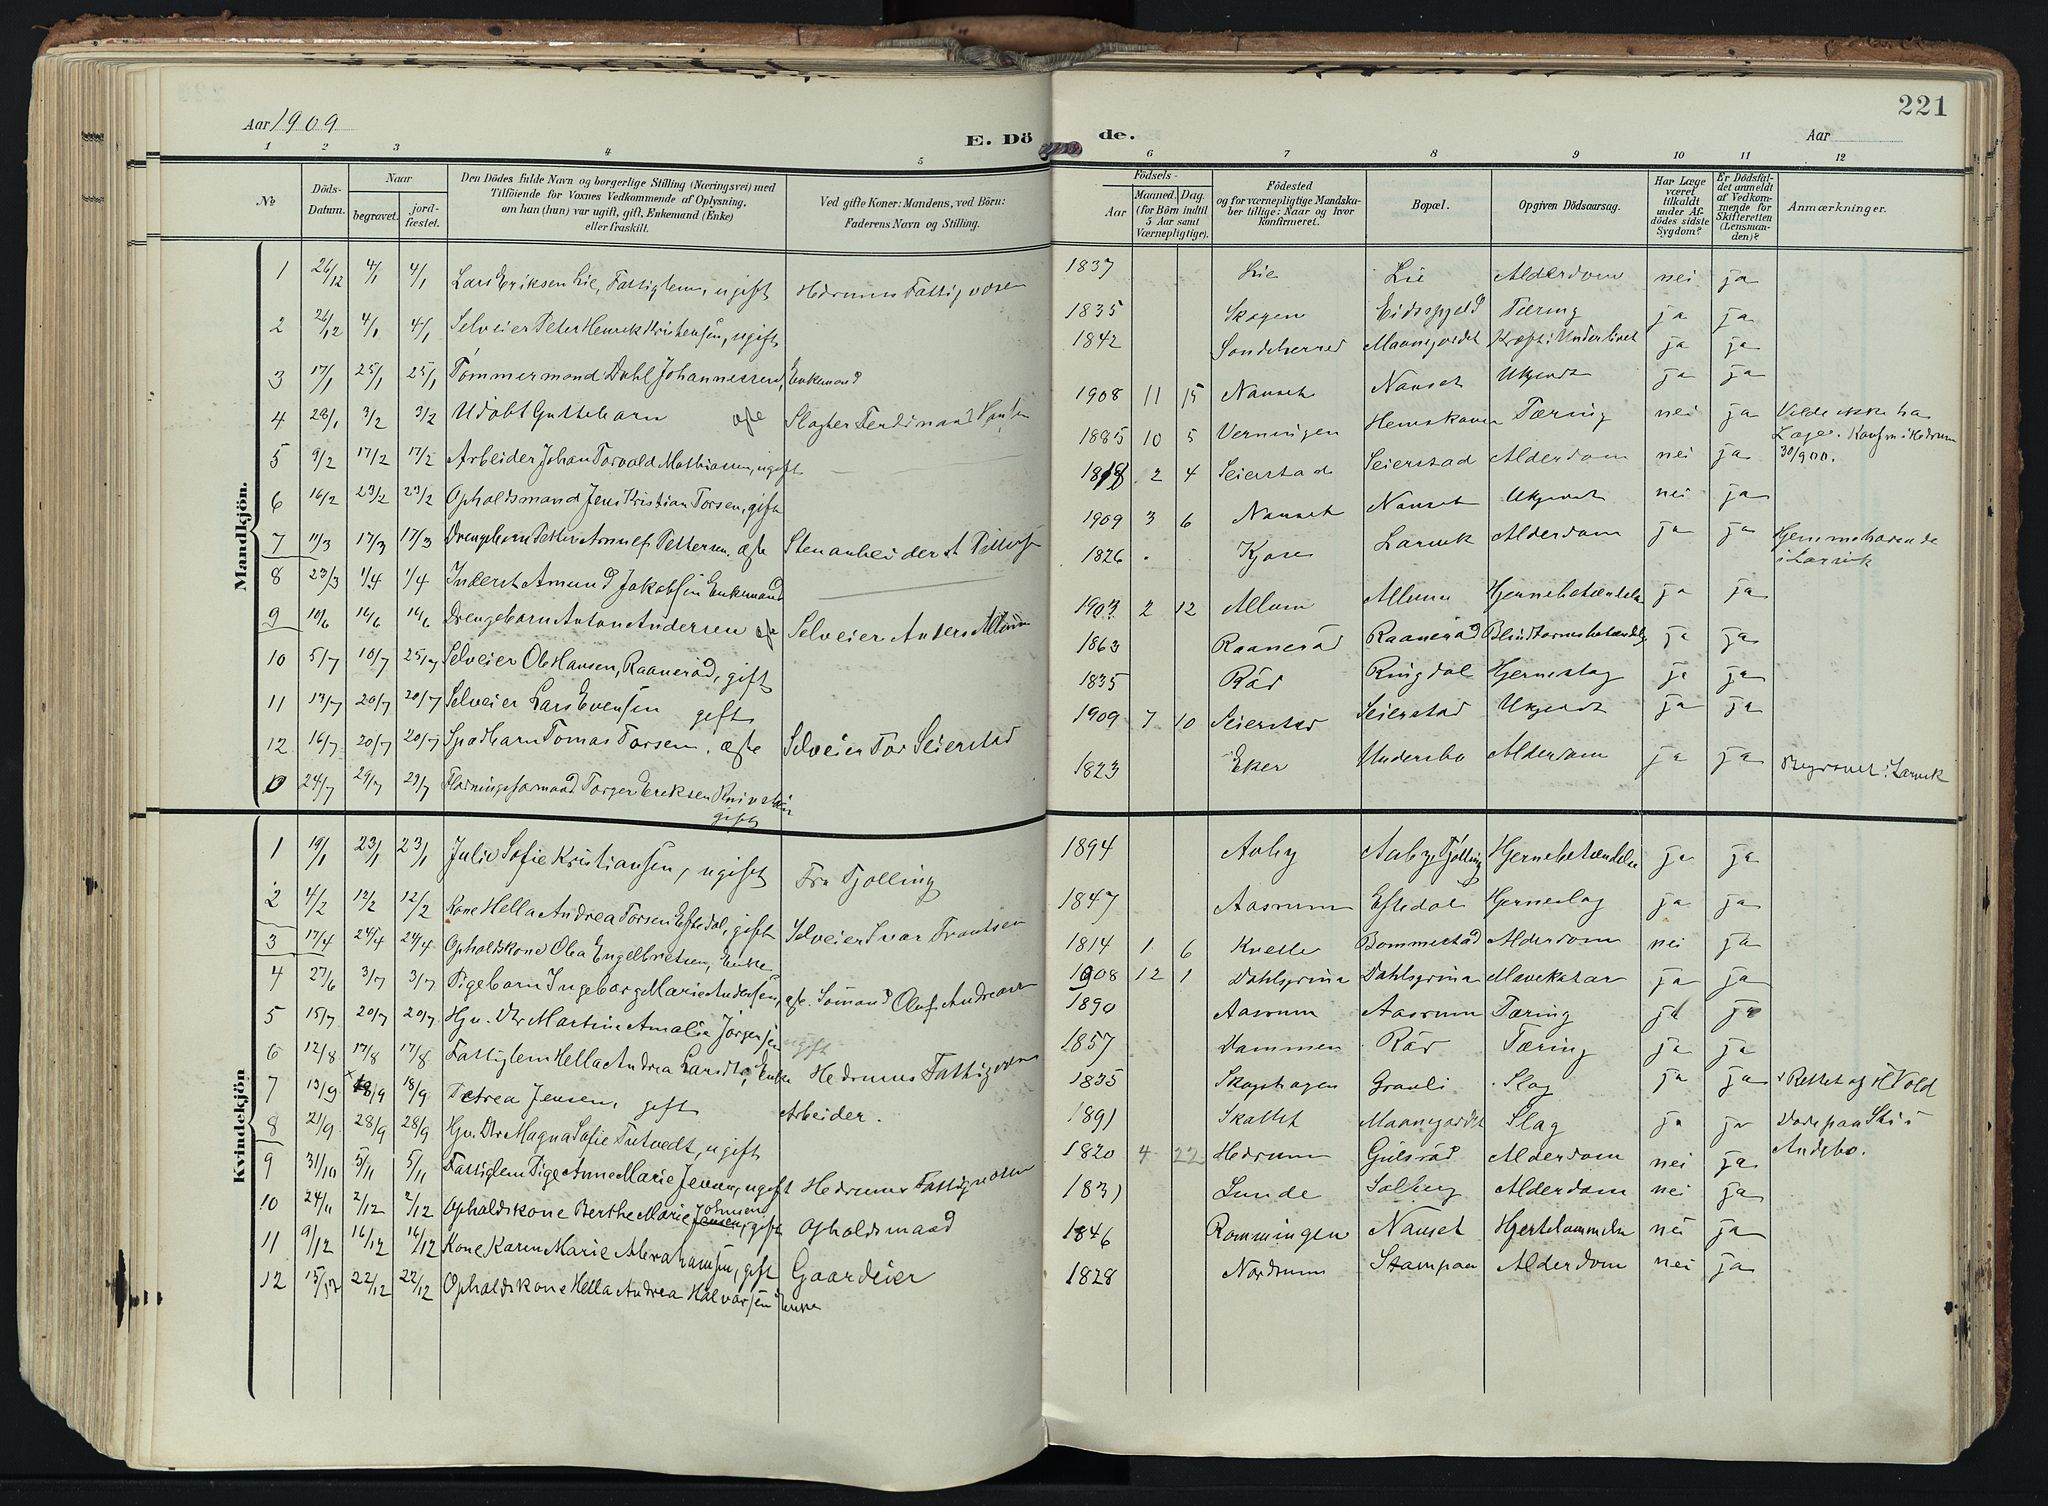 221
Aar 1909
E. Dö de.
Aar
1 2 3 4 5 6 7 8 9 10 11 12
№ Döds-Datum. Naar begravet. jord-fæstet. Den Dödes fulde Navn og borgerlige Stilling (Næringsvei) med Tilföiende for Voxnes Vedkommende af Oplysning, om han (hun) var ugift, gift, Enkemand (Enke) eller fraskilt. Ved gifte Koner: Mandens, ved Börn: Faderens Navn og Stilling. Födsels- Aar Maaned. Dag. (for Börn indtil 5 Aar samt Værnepligtige). Födested og for værnepligtige Mandskaber tillige: Naar og hvor konfirmeret. Bopæl. Opgiven Dödsaarsag. Har Læge været tilkaldt under Afdödes sidste Sygdom? Er Dödsfaldet anmeldt af Vedkommende for Skifteretten (Lensmanden)? Anmærkninger.
Mandkjön.
1 26/12 4/1 4/1 Lars Eriksen Lie, Fattiglem, ugift Hedrums Fattigvæsen 1837 Lie Lie Alderdom nei ja
2 26/12 4/1 4/1 Selveier Peter Henrik Kristensen, ugift 1835 Skogen Eidsfjeld Tæring ja ja
3 17/1 25/1 25/1 Tömmermand Dahl Johannessen, Enkemand 1842 Sondeherred Maanejordet Kræft i Underlivet ja ja
4 28/1 3/2 3/2 Udöbt Guttebarn ægte Slagter Ferdinand Hansen 1908 11 15 Nanset Nanset Ukjendt ja ja
5 9/2 17/2 17/2 Arbeider Johan Torvald Mathiasen, ugift 1885 10 5 Verningen Hemskoven Tæring nei ja Vilde ikke ha Læge. Konfm i Hedrum 30/9 00.
6 16/2 23/2 23/2 Opholdsmand Jens Kristian Torsen, gift 1818 2 4 Seierstad Seierstad Alderdom nei ja
7 11/3 17/3 17/3 Drengebarn Petter Arnulf Pettersen. ægte Stenarbeider A Petters 1909 3 6 Nanset Nanset Ukjendt nei ja
8 23/3 1/4 1/4 Inderst Amund Jakobsen Enkemand 1826 Kjose Larvik Alderdom ja ja Hjemmehørende i Larvik
9 10/6 16/6 16/6 Drengebarn Anton Andersen ægte Selveier Anders Allum 1903 2 12 Allum Allum Hjernebetændelse ja ja
10 5/7 10/7 25/7 Selveier Ole Hansen, Raanerød, gift 1863 Raanerød Raanerød Blindtarmsbetændelse ja ja
11 13/7 20/7 20/7 Selveier Lars Evensen gift 1835 Röd Ringdal Hjerneslag ja ja
12 16/7 20/7 20/7 Spædbarn Tomas Torsen. ægte Selveier Tor Seierstad 1909 7 10 Seierstad Seierstad Ukjendt ja ja
0 24/7 29/7 29/7 Torger Eriksen gift 1823 Eker Undersbo Alderdom ja ja Begravet i Larvik
Kvindekjön
1 19/1 23/1 23/1 Julie Sofie Kristiansen, ugift Fra Tjølling 1894 Aaby Aaby, Tjölling Hjernebetændelse ja ja
2 4/2 12/2 12/2 Kone Hella Andrea Torsen Eftedal, gift Selveier Ivar Frantsen 1847 Aasrum Eftedal Hjerneslag ja ja
3 17/4 24/4 24/4 Opholdskone Olea Engelbretsen, Enke 1814 1 6 Kvelle Bommestad Alderdom nei ja
4 27/6 3/7 3/7 Pigebarn Ingeborg Marie Andersen, ægte. Sömand Oluf Andreas 1908 12 1 Dahlsgrina Dahlsgrina Mavekatar ja ja
5 15/7 20/7 20/7 Hjv. Dtr Martine Amalie Jörgensen ugift 1890 Aasrum Aasrum Tæring ja ja
6 12/8 17/8 17/8 Fattiglem Hella Andrea Larsdtr, Enke Hedrums Fattigvæsen 1857 Dammen Röd Tæring ja ja
7 13/9 x 18/9 18/9 Petrea Jensen, gift Arbeider. 1835 Skogshagen Gravli Slag ja ja x Rettet af H Vold
8 21/9 28/9 28/9 Hjv. Dtr Magna Sofie Tutvedt, ugift 1891 Skattet Maanejordet Slag ja ja Döde paa Ski i Andebo.
9 31/10 5/11 5/11 Fattiglem Pige Anne Marie Jensen, ugift Hedrums Fattigvæsen 1820 4 22 Hedrum Gulsröd Alderdom nei ja
10 24/11 2/12 2/12 Opholdskone Berthe Marie Jensen, Johnsen gift Opholdsmand 1831 Lunde Solberg Alderdom nei ja
11 9/12 16/12 16/12 Kone Karen Marie Abrahamsen, gift Gaardeier 1846 Rommingen Nanset Hjertelammelse nei ja
12 15/12 22/12 22/12 Opholdskone Hella Andrea Halvorsen Enke 1828 Nordrum Stampaa Alderdom nei ja